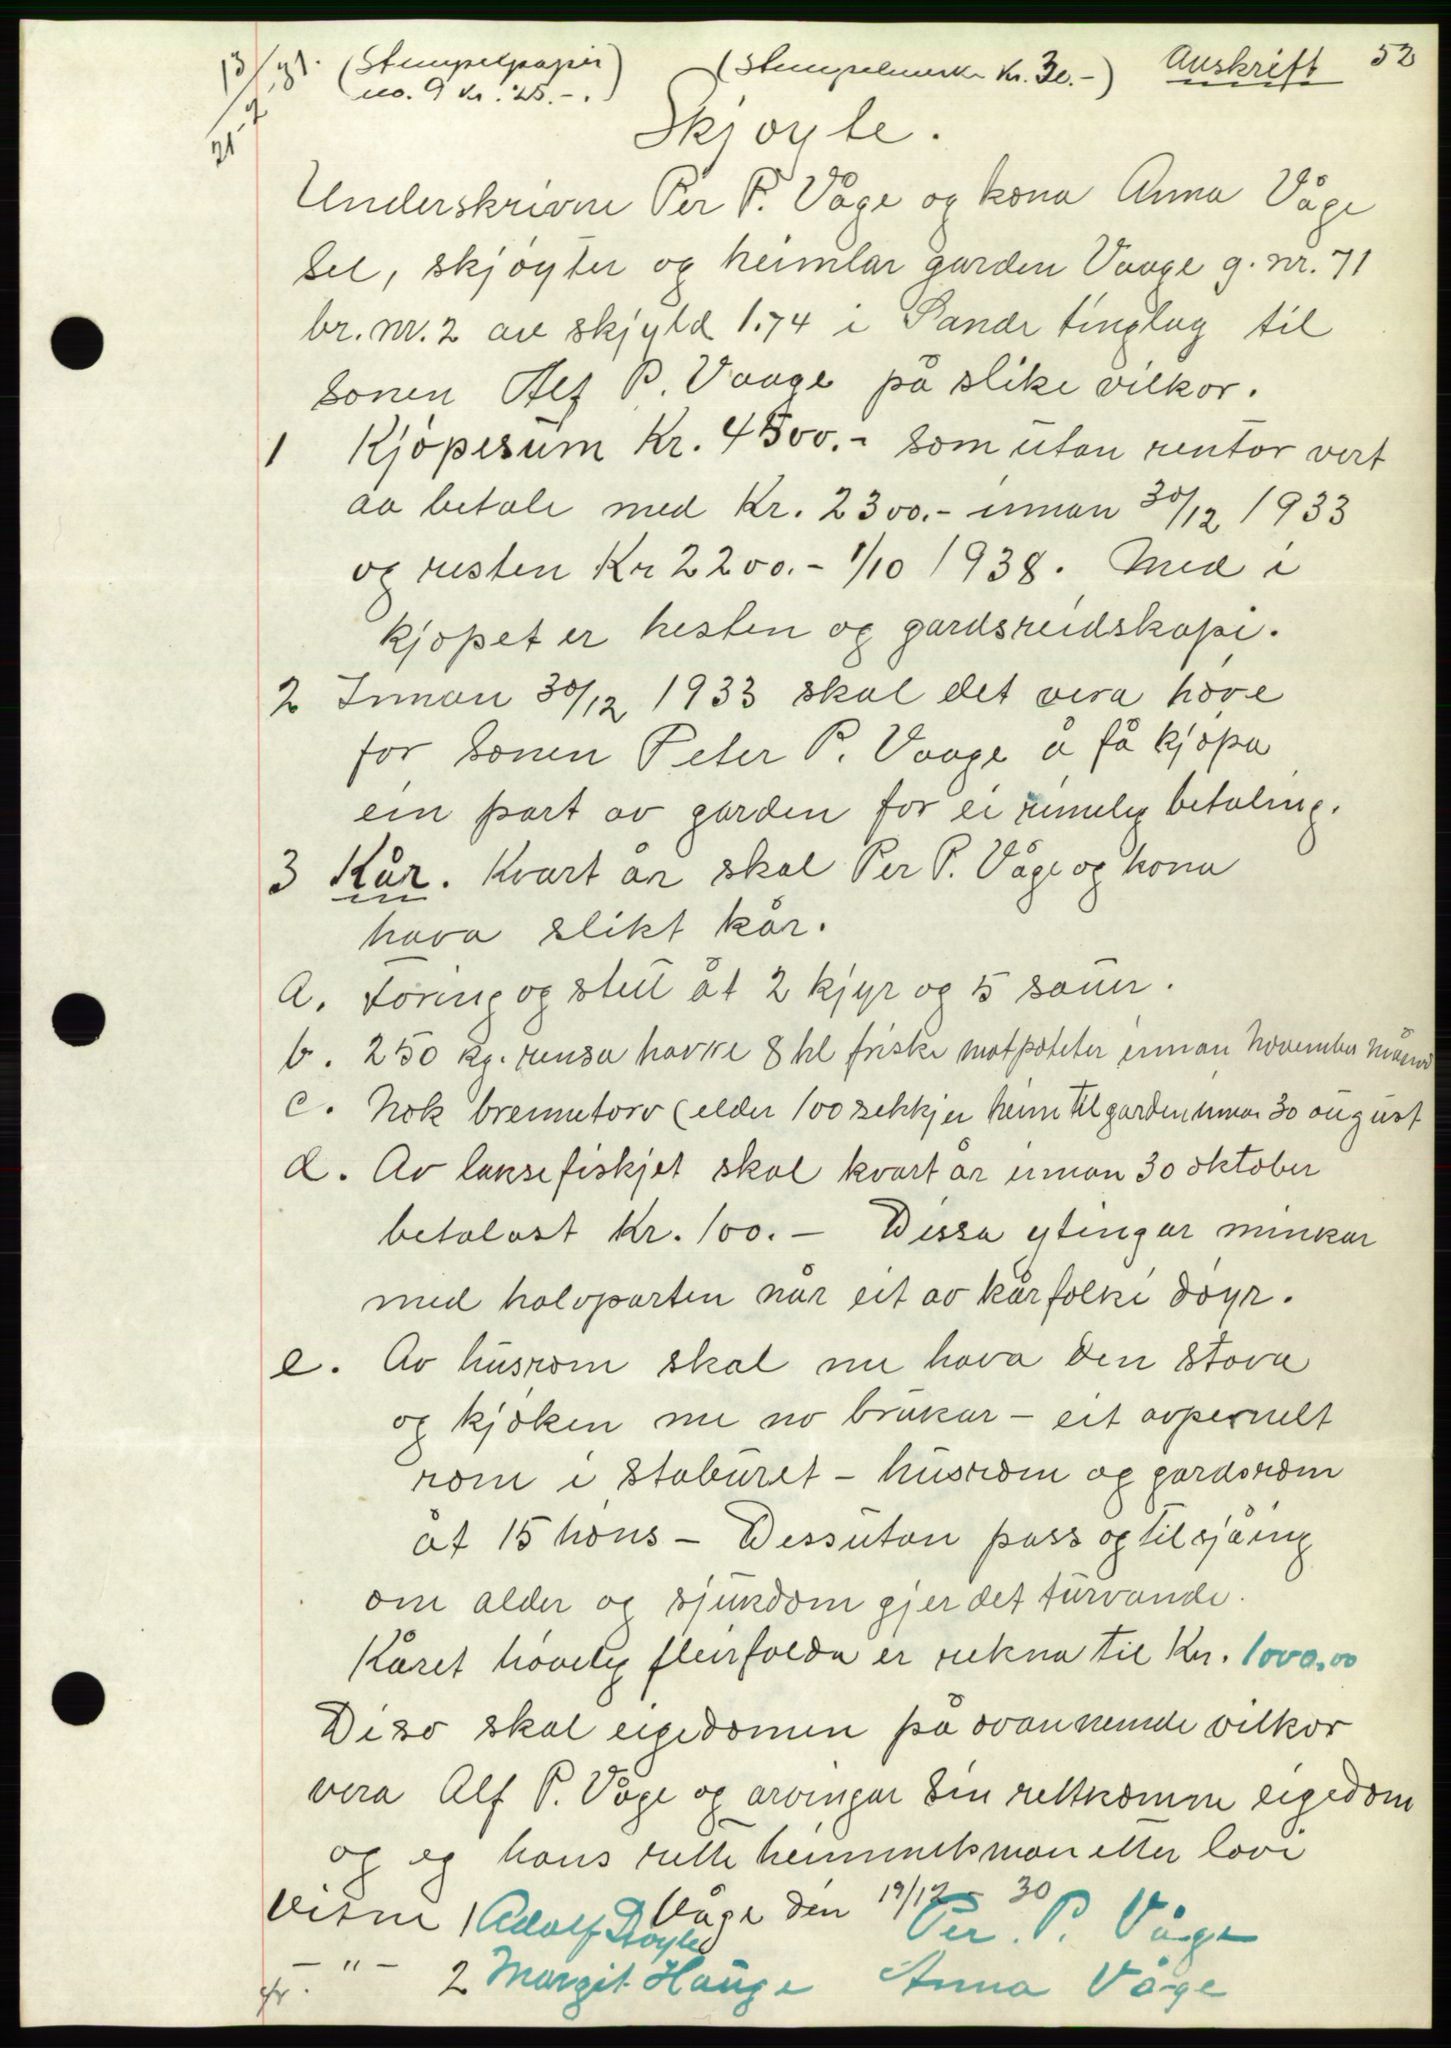 13/31. (Stempelpapir (Stempelmerke Kr. 30.-) Auskrift 52
no. 9 kr. 25.-.)
21-2
Skjøyte.
Underskrivne Per P. Våge og kona Anna Våge
sel, skjøyter og heimlar garden Vaage g. nr. 71
br. nr. 2 av skjyld 1.74 i Sande tinglag til
sonen Alf P. Vaage på slike vilkor.
1 Kjøpesum Kr. 4500.- som utan rentor vert
aa betale med Kr. 2300.- innan 30/12 1933
og resten Kr 2200.- 1/10 1938. Med i
kjøpet er hesten og gardsreidskapi.
2 Innan 30/12 1933 skal det vera høve
for sonen Peter P. Vaage å få kjøpa
ein part av garden for ei rimelig betaling.
3 Kår. Kvart år skal Per P. Våge og kona
hava slikt kår.
a. Foring og stell åt 2 kjyr og 5 sauer.
b. 250 kg. rensa havre 8 hl friske matpoteter innan november månad
c. Nok brennetorv (elder 100 sekkjer heim til garden innan 30 august
d. Av laksefiskjet skal kvart år innan 30 oktober
betalast Kr. 100.- Dissa ytingar minkar
med halvparten når eit av kårfolki døyr.
e. Av husrom skal me hava den stova
og kjøken me no brukar - eit avpernelt
rom i staburet - husrom og gardsrom
åt 15 høns - Dessutan pass og tilsjåing
om alder og sjukdom gjer det turvande.
Kåret høvelig fleirfalda er rekna til Kr. 1000.00
Diso skal eigedomen på ovannemde vilkor
vera Alf P. Våge og arvingar sin rettkomne eigedom
og eg hans rette heimmelsman etter lovi
Våge den 19/12 - 30
Vitne 1 Adolf Drøyle Per. P. Våge
- " - 2 Margit Hauge Anna Våge